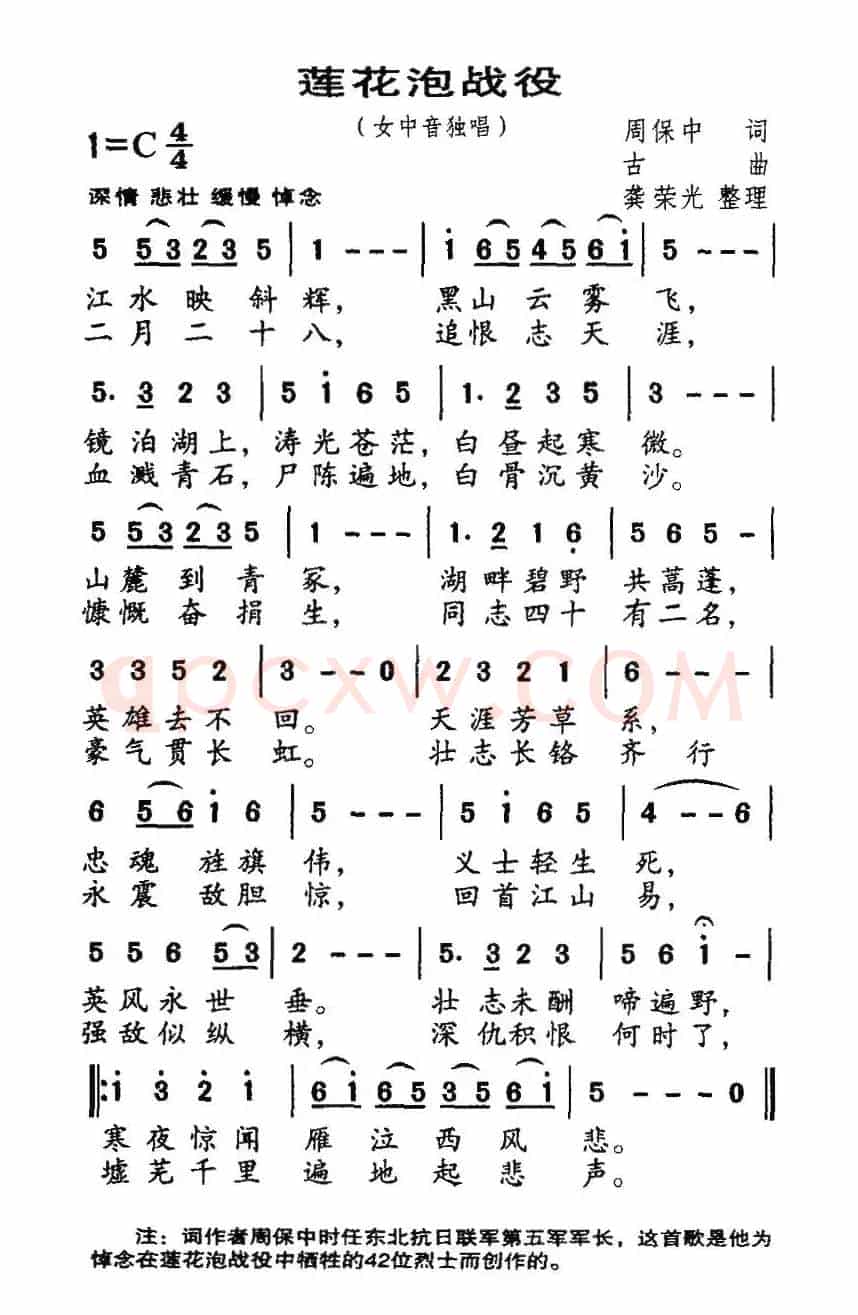 莲花泡战役
（女中音独唱）
1=C 4/4
周保中 词
古 曲
龚荣光 整理
深情 悲壮 缓慢 悼念
5 5 3 2 3 5 | 1 - - - | i 6 5 4 5 6 i | 5 ~ - - |
江水映斜辉， 黑山云雾飞，
二月二十八， 追恨志天涯，
5. 3 2 3 | 5 i 6 5 | 1. 2 3 5 | 3 - - - |
镜泊湖上，涛光苍茫，白昼起寒微。
血溅青石，尸陈遍地，白骨沉黄沙。
5 5 3 2 3 5 | 1 - - - | 1. 2 1 6 | 5 6 5 - |
山麓到青冢， 湖畔碧野共蒿蓬，
慷慨奋捐生， 同志四十有二名，
3 3 5 2 | 3 - - 0 | 2 3 2 1 | 6 - - - |
qpcxw.COM
英雄去不回。 天涯芳草系，
豪气贯长虹。 壮志长铬齐行
6 5 6 i 6 | 5 - - - | 5 i 6 5 | 4 - - 6 |
忠魂旌旗伟， 义士轻生死，
永震敌胆惊， 回首江山易，
5 5 6 5 3 | 2 - - - | 5. 3 2 2 | 5 6 i - |
英风永世垂。 壮志未酬啼遍野，
强敌似纵横， 深仇积恨何时了，
‖: i 3 2 i | 6 i 6 5 3 5 6 i | 5 - - - 0 ‖
寒夜惊闻雁泣西风悲。
墟芜千里遍地起悲声。
注：词作者周保中时任东北抗日联军第五军军长，这首歌是他为
悼念在莲花泡战役中牺牲的42位烈士而创作的。